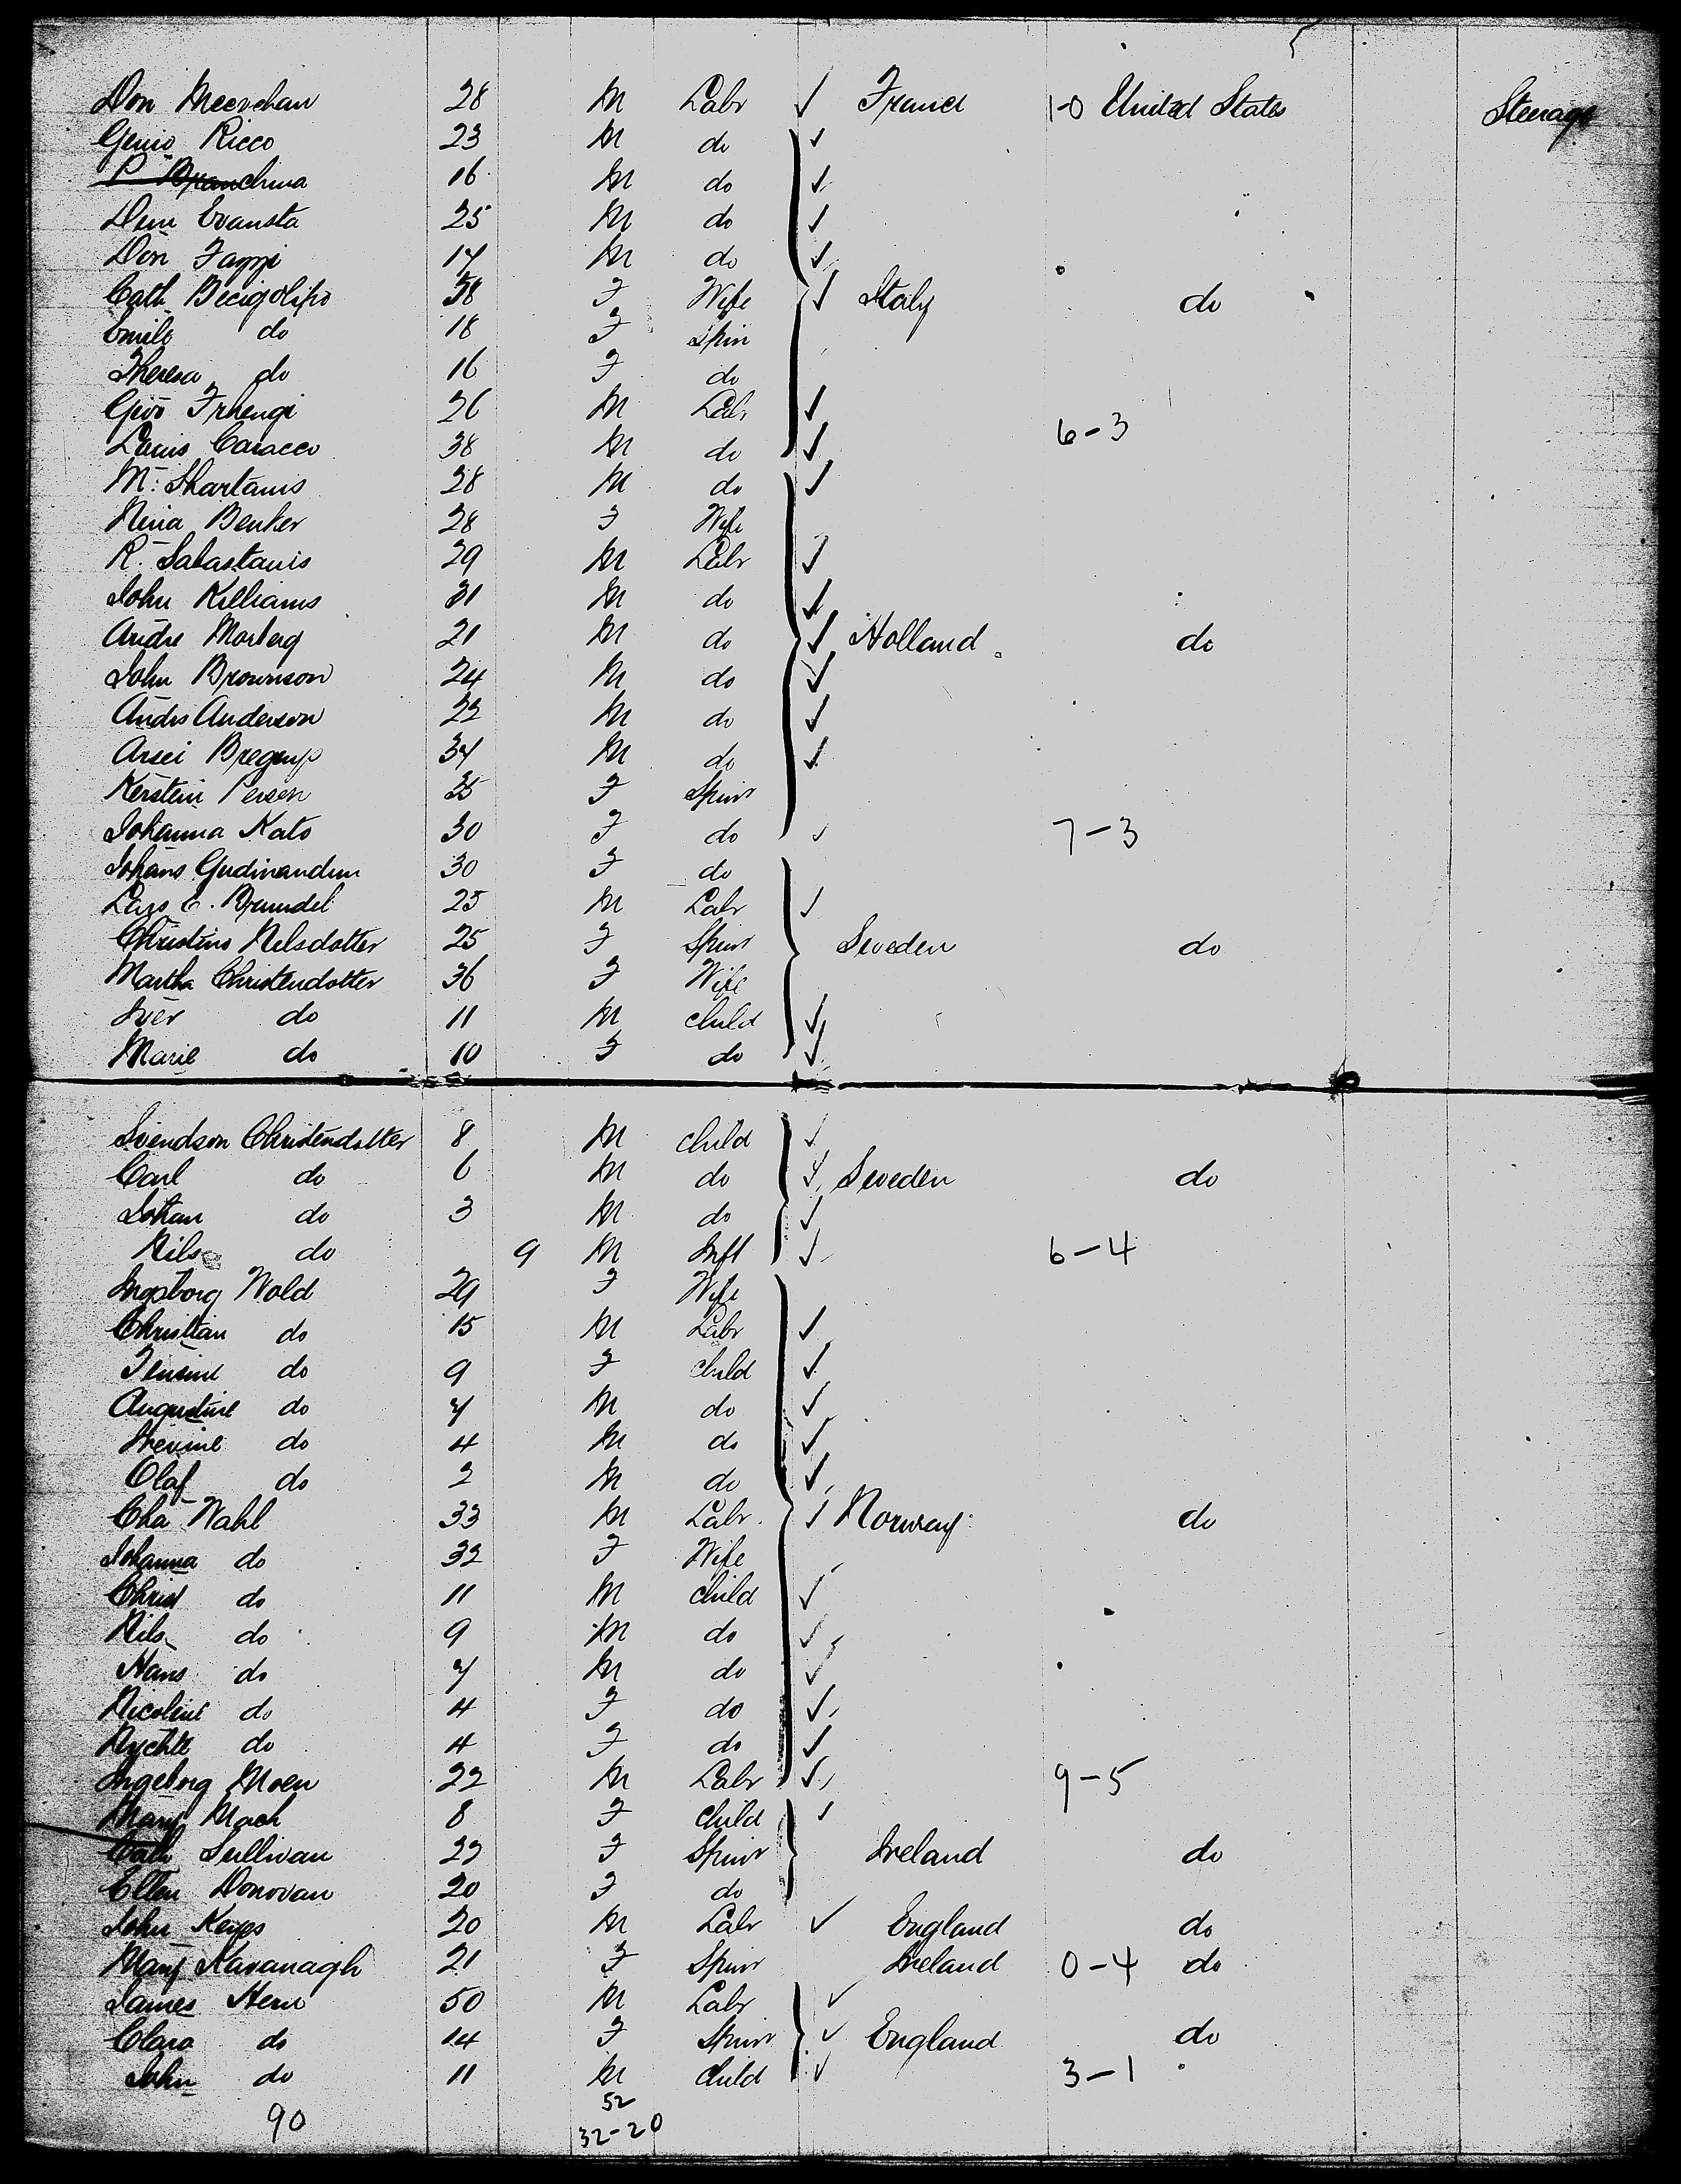 Don Meerchan 28 M Labr ✓ France 1-0 United States Steerage
Genio Ricco 23 M do ✓
P Branchina 16 M do ✓
Dem Evansta 25 M do ✓
Don Faggi 14 M do ✓
Cath Becigolipo 38 F Wife ✓ Italy do
Emile do 18 F Spin
Theresa do 16 F do
Givo 26 M Labr ✓ 6-3
Louis Caracco 38 M do ✓
M. Shartanis 28 M do ✓
Nina Benker 28 F Wife
R. Sabastanis 29 M Labr ✓
John Killiams 31 M do ✓
Andre Morberg 21 M do ✓ Holland do
John Brownson 24 M do ✓
Andrs Anderson 22 M do ✓
Arsei 34 M do ✓
Kerstein Persen 35 F Spinr
Johanna Kato 30 F do ✓ 7-3
Johans 30 F do
Lars E. Brundel 25 M Labr ✓
Christine Nelsdotter 25 F Spinr Sweden do
Martha Christendotter 36 F Wife
Iver do 11 M child ✓
Marie do 10 F do ✓
Svendson Christendotter 8 M child ✓
Carl do 6 M do ✓ Sweden do
Johan do 3 M do ✓
Nils do 9 M Inft ✓ 6-4
Ingeborg Wold 29 F Wife
Christian do 15 M Labr ✓
Jensine do 9 F child ✓
Augustine do 7 M do ✓
do 4 M do ✓
Olaf do 2 M do ✓
Cha Wahl 33 M Labr ✓ Norway do
Johanna do 32 F Wife
Christ do 11 M child ✓
Nils do 9 M do ✓
Hans do 7 M do ✓
Nicoline do 4 F do ✓
do 4 F do ✓
Ingeborg Moen 22 M Labr ✓ 9-5
Mary Mack 8 F child ✓
Cath Sullivan 22 F Spinr Ireland do
Ellen Donovan 20 F do
John Keyes 20 M Labr ✓ England do
Mary Kavanagh 21 F Spinr Ireland 0-4 do
James Hern 50 M Labr ✓
Clara do 14 F Spinr ✓ England do
John do 11 M child ✓ 3-1
52
90 32-20